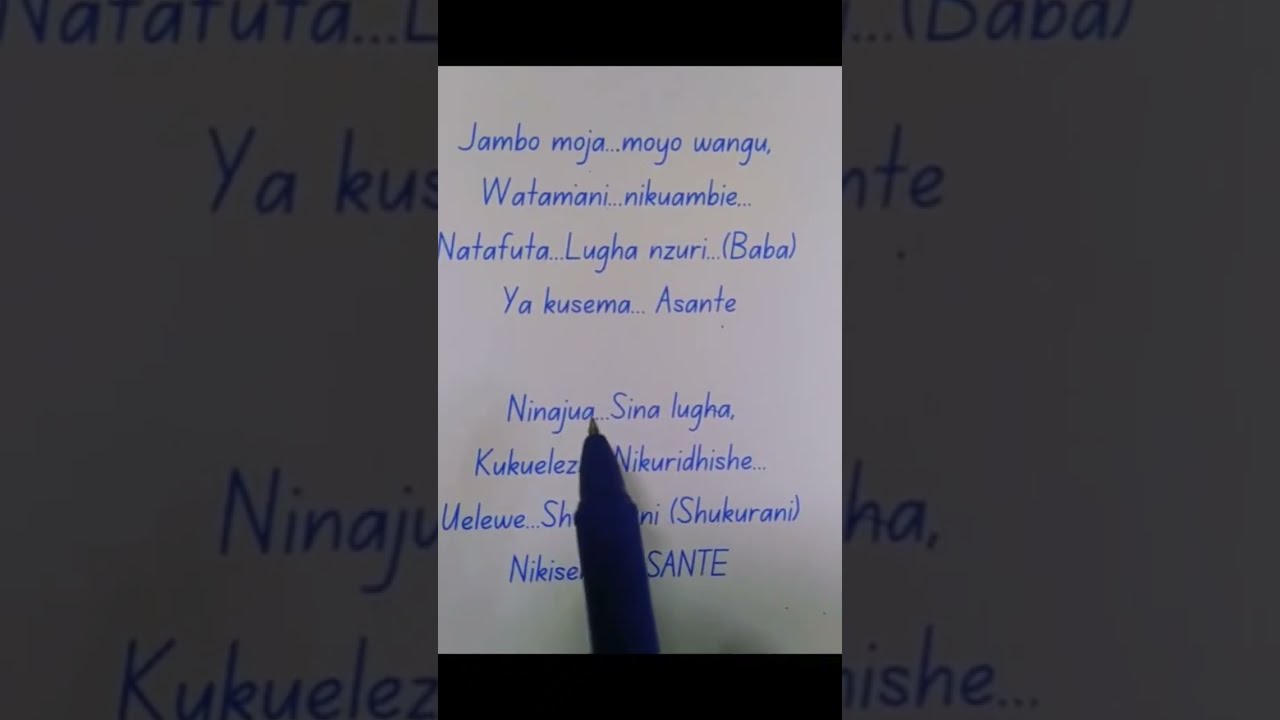 Jambo moja...moyo wangu,
Watamani...nikuambie...
Natafuta...Lugha nzuri...(Baba)
Ya kusema... Asante
Ninajua...Sina lugha,
Nikuridhishe...
Uelewe... (Shukurani)